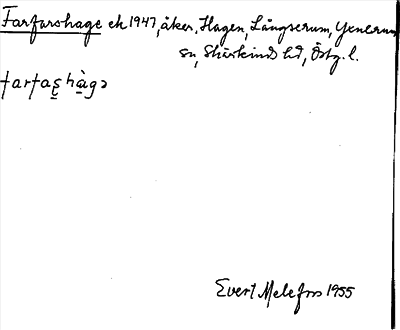 Farfarshage ek 1947, åker, Hagen, Långserum, Yxnerum
sn, Skärkinds hd, Östg. l.
farfas̠hà̠gə
Evert Melefors 1955